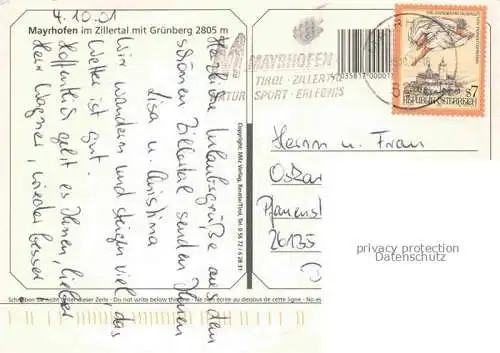 4.10.01
Mayrhofen im Zillertal mit Grünberg 2805 m
Herzliche Urlaubsgrüße aus dem
schönen Zillertal senden Ihnen
Lisa u. Christina
Wir wandern und steigen viel, das
Wetter ist gut.
Hoffentlich geht es Ihnen, lieber
Herr Wagner, wieder besser
Copyright: Milz Verlag, Reutte/Tirol, Tel. 0 56 72 / 6 28 31
MAYRHOFEN
TIROL · ZILLERTAL
NATUR SPORT · ERLEBNIS
S7
REPUBLIK ÖSTERREICH
Herrn u. Frau
Oskar
26135
privacy protection
Datenschutz
Schreiben Sie nicht unter dieser Zeile · Do not write below this line · Ne rien écrire au dessous de cette ligne · No es